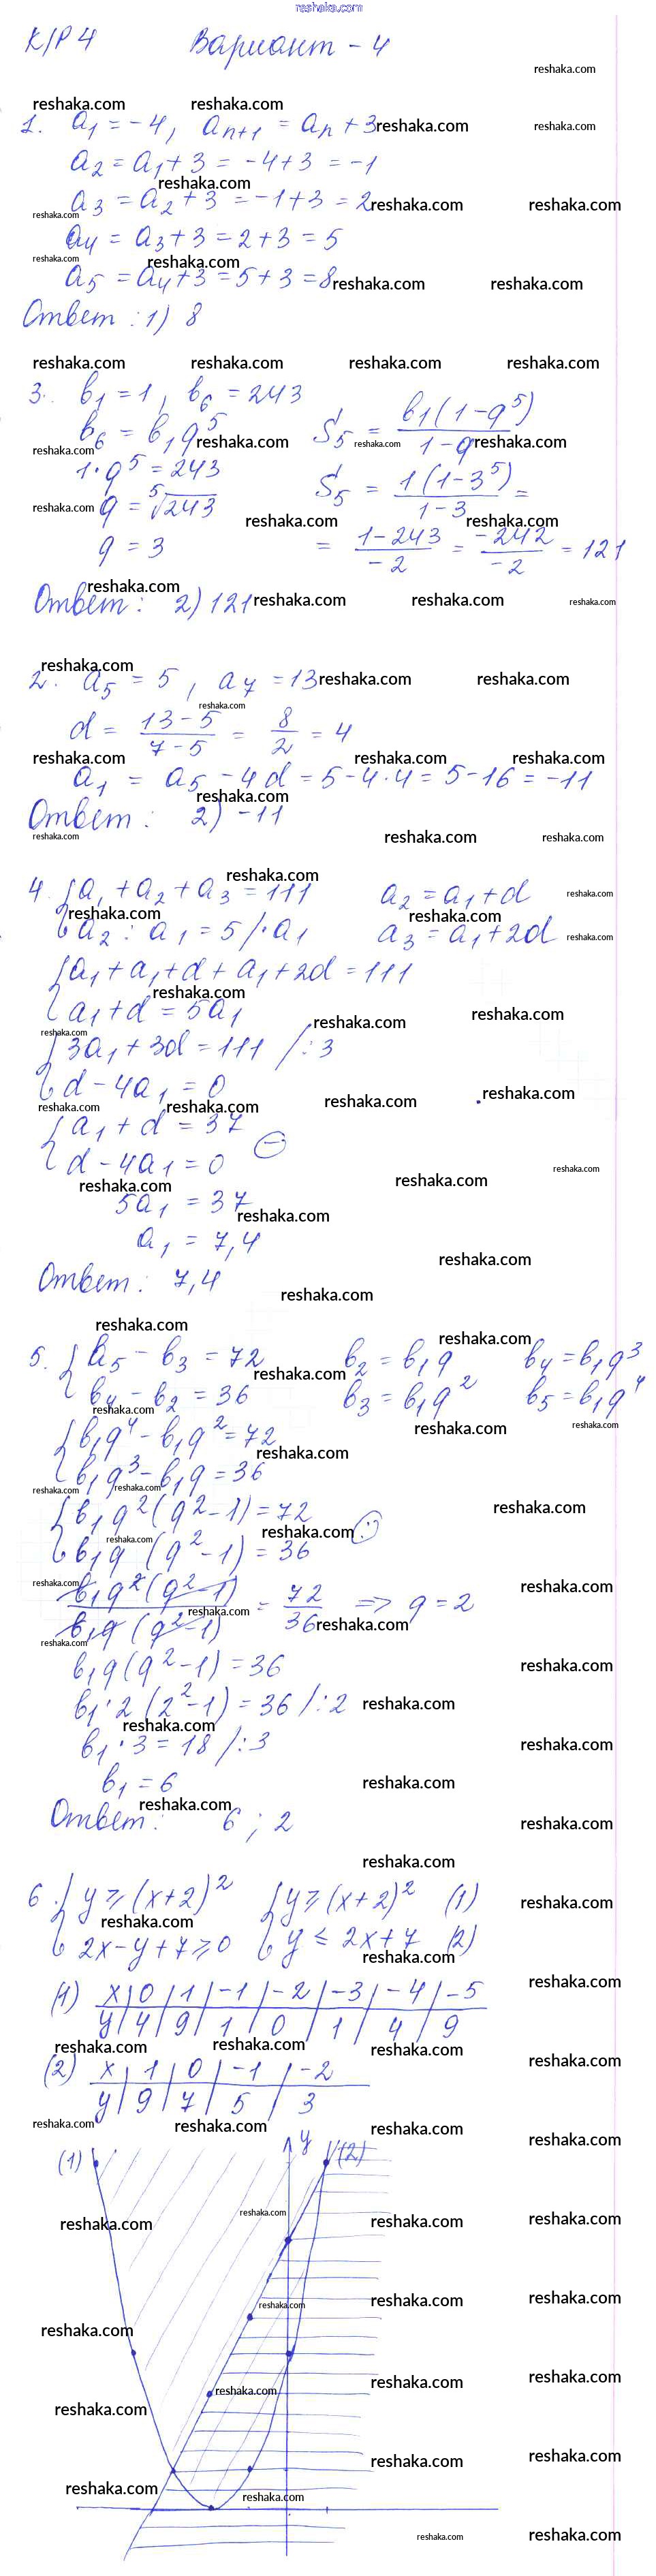 reshaka.com
К/Р 4 Вариант - 4
1. a₁ = -4, aₙ₊₁ = aₙ + 3
a₂ = a₁ + 3 = -4+3 = -1
a₃ = a₂ + 3 = -1+3 = 2
a₄ = a₃ + 3 = 2 + 3 = 5
a₅ = a₄ + 3 = 5 + 3 = 8
Ответ: 1) 8
3. b₁ = 1, b₆ = 243
b₆ = b₁q⁵ S₅ = b₁(1-q⁵) / 1-q
1·q⁵ = 243
q = ⁵√243 S₅ = 1(1-3⁵) / 1-3 =
q = 3 = 1-243 / -2 = -242 / -2 = 121
Ответ: 2) 121
2. a₅ = 5, a₇ = 13
d = 13-5 / 7-5 = 8/2 = 4
a₁ = a₅ - 4d = 5-4·4 = 5-16 = -11
Ответ: 2) -11
4. { a₁ + a₂ + a₃ = 111 a₂ = a₁+d
a₂ : a₁ = 5 /·a₁ a₃ = a₁+2d
{ a₁ + a₁+d + a₁+2d = 111
a₁+d = 5a₁
{ 3a₁+3d = 111 /:3
d-4a₁ = 0
{ a₁ + d = 37
d-4a₁ = 0 (-)
5a₁ = 37
a₁ = 7,4
Ответ: 7,4
5. { b₅ - b₃ = 72 b₂ = b₁q b₄ = b₁q³
b₄ - b₂ = 36 b₃ = b₁q² b₅ = b₁q⁴
{ b₁q⁴ - b₁q² = 72
b₁q³ - b₁q = 36
{ b₁q²(q²-1) = 72
b₁q (q²-1) = 36 (:)
b₁q²(q²-1) / b₁q (q²-1) = 72/36 => q = 2
b₁q(q²-1) = 36
b₁·2(2²-1) = 36 /:2
b₁·3 = 18 /:3
b₁ = 6
Ответ: 6; 2
6. { y ≥ (x+2)² { y ≥ (x+2)² (1)
2x-y+7 ≥ 0 y ≤ 2x+7 (2)
(1) x | 0 | 1 | -1 | -2 | -3 | -4 | -5
y | 4 | 9 | 1 | 0 | 1 | 4 | 9
(2) x | 1 | 0 | -1 | -2
y | 9 | 7 | 5 | 3
(1) y (2)